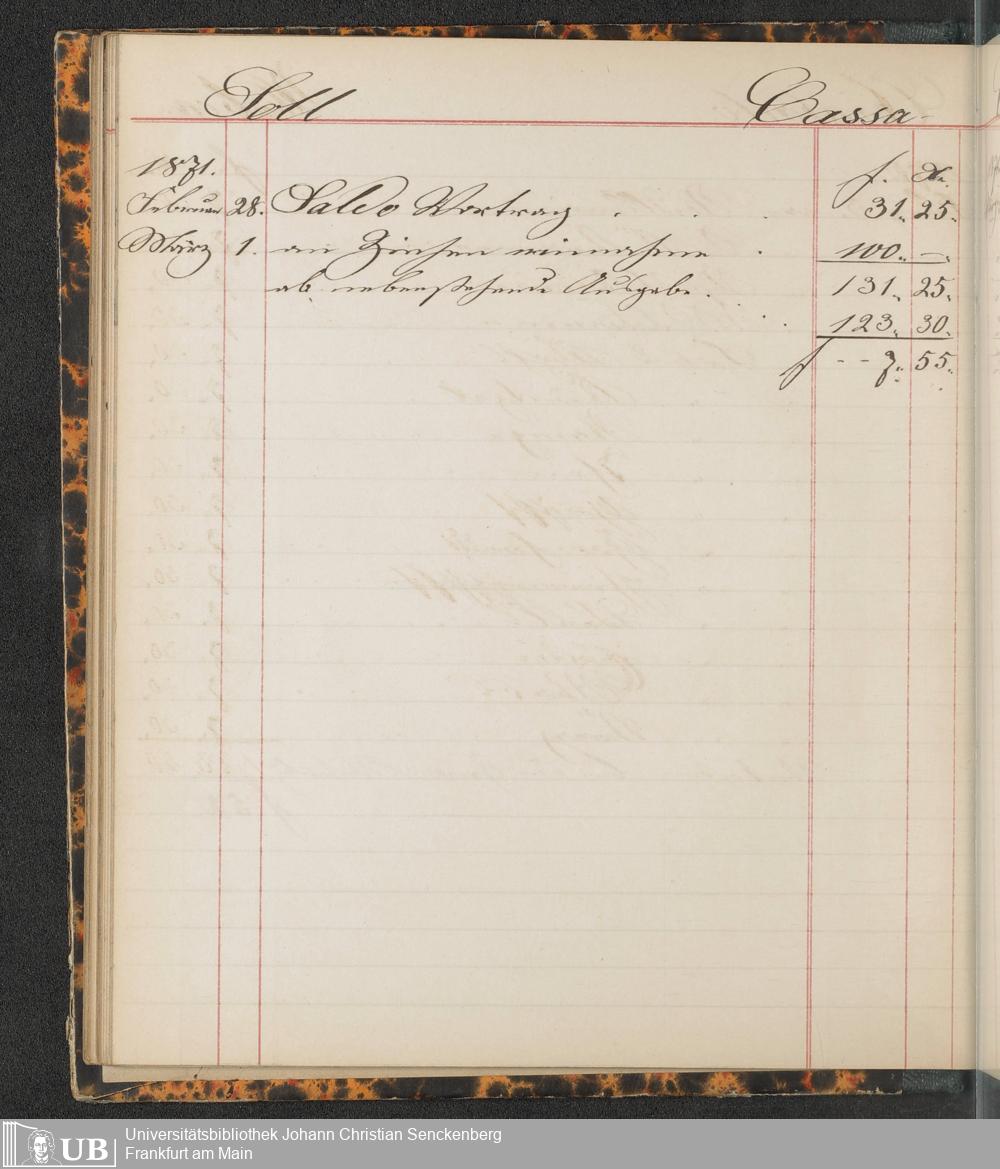 Soll Cassa
1871. f. Xr.
Februar 28. Saldo Vortrag . . . 31„ 25„
März 1. an Zinsen einnahme . 100„ —„
ab nebenstehende Ausgabe . 131„ 25„
. . 123„ 30„
f - - 7„ 55„
UB
Universitätsbibliothek Johann Christian Senckenberg
Frankfurt am Main